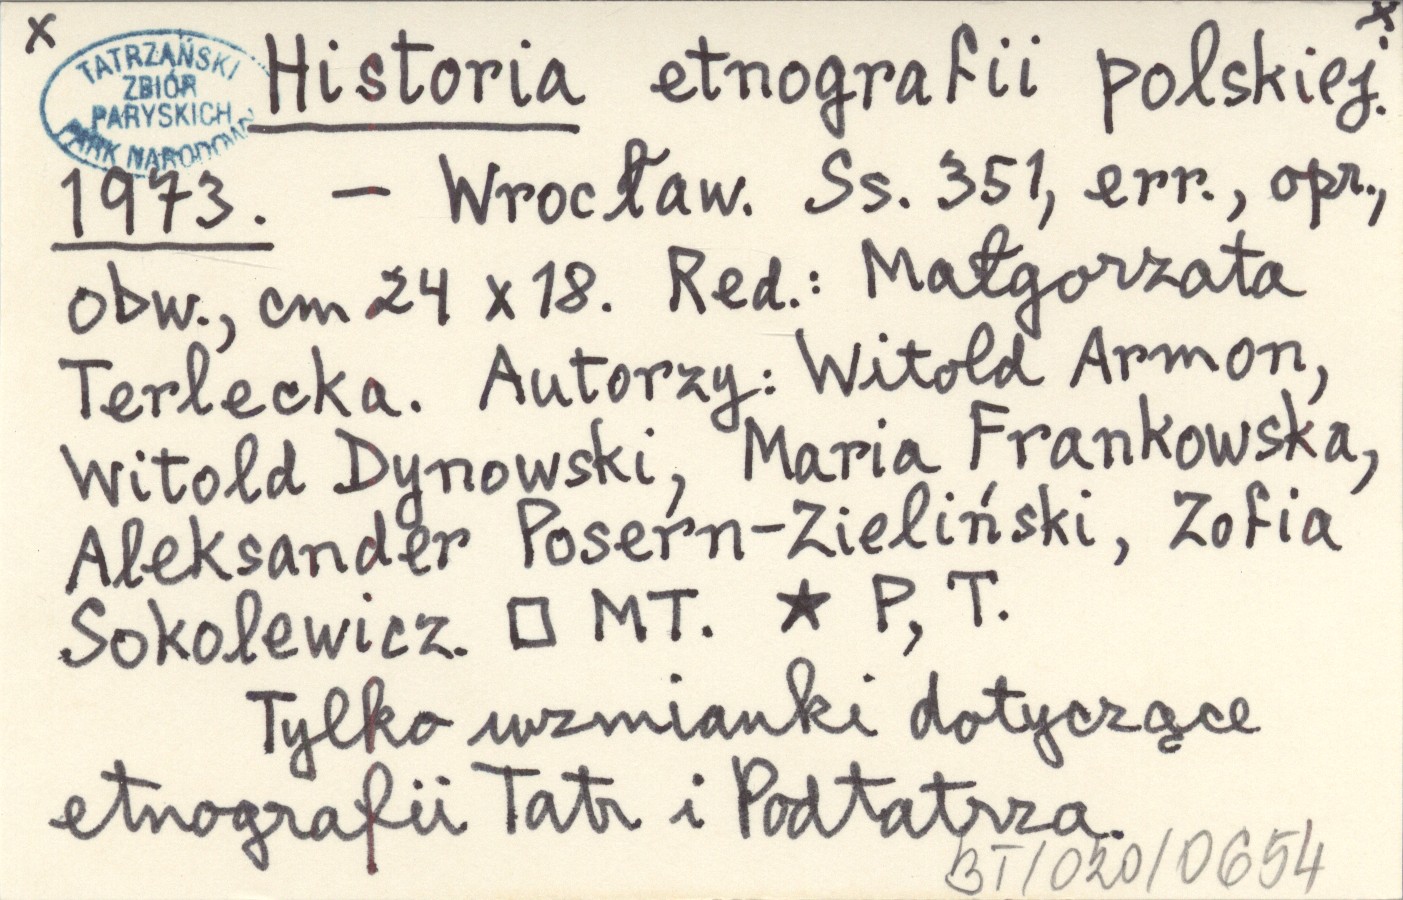 x x
TATRZAŃSKI
ZBIÓR
PARYSKICH
PARK NARODOWY
Historia etnografii polskiej.
1973. — Wrocław. Ss. 351, err., opr.,
obw., cm 24 x 18. Red.: Małgorzata
Terlecka. Autorzy: Witold Armon,
Witold Dynowski, Maria Frankowska,
Aleksander Posern-Zieliński, Zofia
Sokolewicz. □ MT. ★ P, T.
Tylko wzmianki dotyczące
etnografii Tatr i Podtatrza.
BT/020/0654